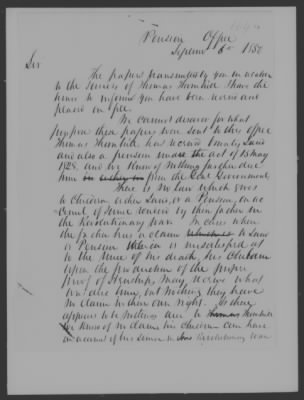 Pension Office
September 6th 1850
Sir
The papers transmitted by you in relation
to the services of Thomas Thornhill have the
honor to inform you have been received and
placed on file.
We cannot discover for what
purpose these papers were sent to this office
Thomas Thornhill has received bounty Land
and also a pension under the act of 15 May
1828. and we know of nothing further due
him from the Genl Government.
There is no law which gives
to Children either Land, or a Pension, on ac
count of service rendered by their father in
the Revolutionary War. In cases where
the father has a claim to Land
or Pension and is unsatisfied at
the time of his death, his Children
upon the production of the proper
proof of heirship, may receive what
was due him, but nothing they have
no claim in their own right. As there
appears to be nothing due to Thomas Thornhill
we know of no claim his children can have
on account of his service in the Revolutionary War